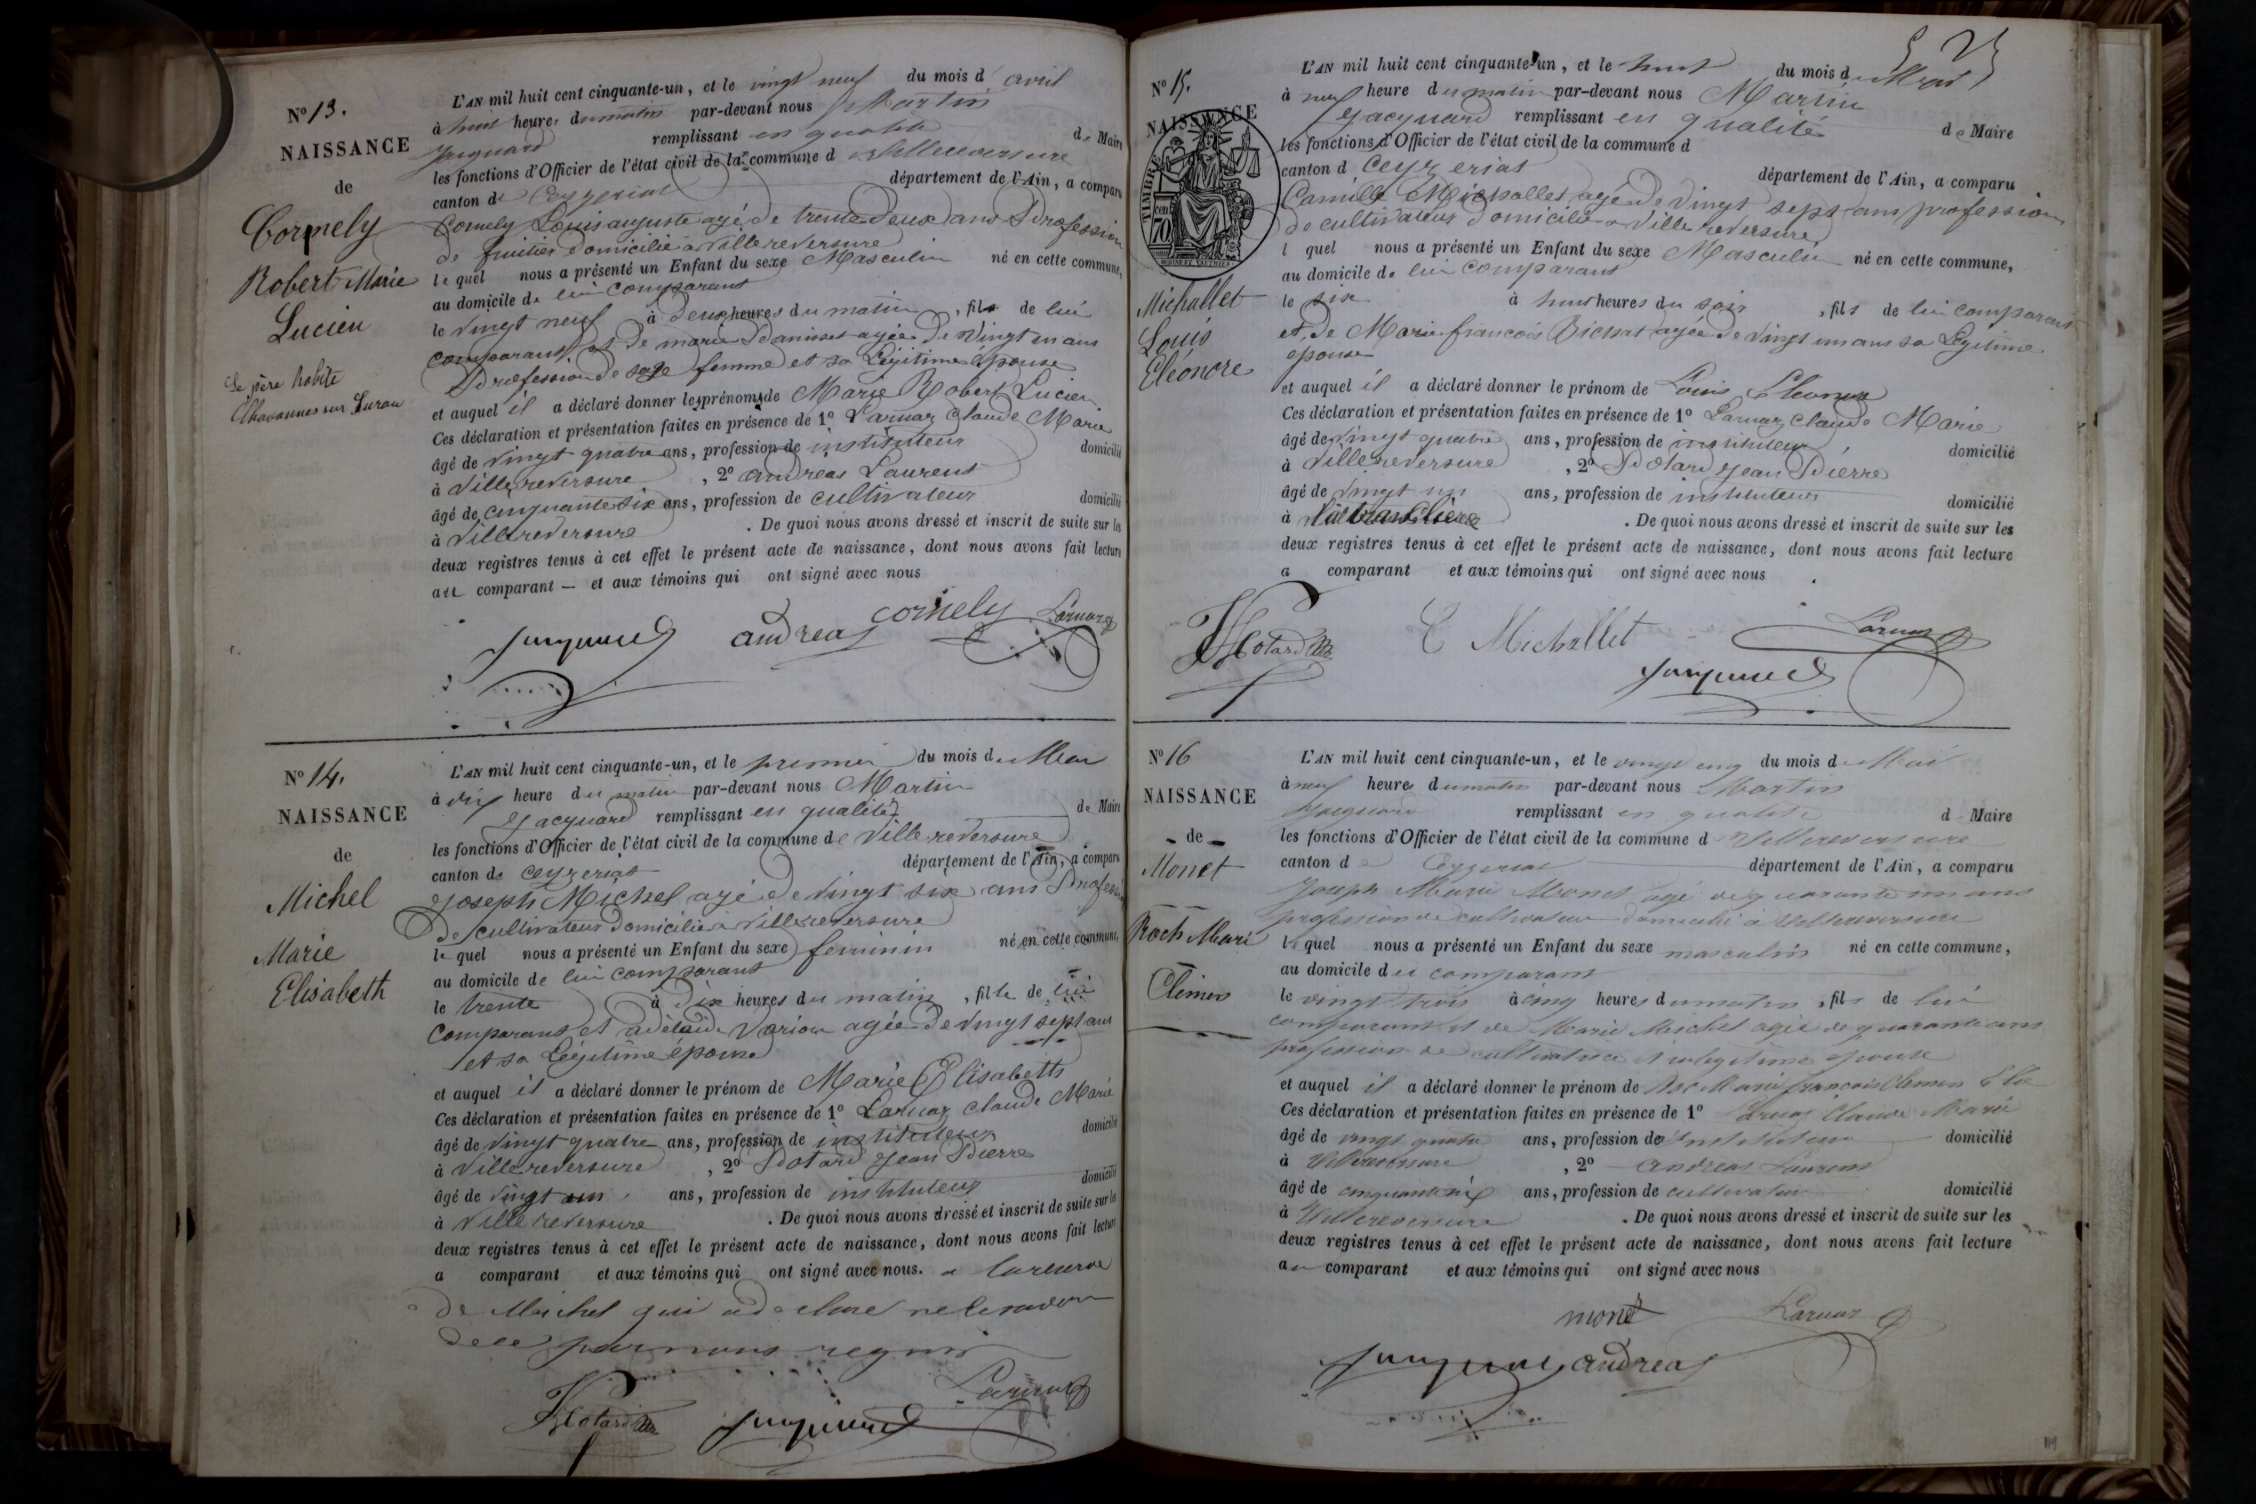 N° 13.
NAISSANCE
de
Cornely
Robert Marie
Lucien
Le père habite
Chavannes sur Suran
L'AN mil huit cent cinquante-un, et le vingt neuf du mois d'avril
à huit heures du matin par-devant nous Martin
Jacquard remplissant en qualité de Maire
les fonctions d'Officier de l'état civil de la commune de Villereversure
canton de Ceyzeriat département de l'Ain, a comparu
Cornely Louis auguste agé de trente deux ans Profession
de fruitier domicilié à Villereversure
lequel nous a présenté un Enfant du sexe Masculin né en cette commune,
au domicile de lui comparant
le vingt neuf à deux heures du matin, fils de lui
comparant et de marie agée de Vingt un ans
Profession de sage femme et sa Légitime épouse
et auquel il a déclaré donner les prénoms de Marie Robert Lucien
Ces déclaration et présentation faites en présence de 1° Larnaz Claude Marie
âgé de vingt quatre ans, profession de instituteur domicilié
à Villereversure, 2° andreas Laurent
âgé de cinquante six ans, profession de cultivateur domicilié
à Villereversure. De quoi nous avons dressé et inscrit de suite sur les
deux registres tenus à cet effet le présent acte de naissance, dont nous avons fait lecture
au comparant — et aux témoins qui ont signé avec nous
Jacquard andreas cornely Larnaz
N° 14.
NAISSANCE
de
Michel
Marie
Elisabeth
L'AN mil huit cent cinquante-un, et le premier du mois de Mai
à dix heure du matin par-devant nous Martin
Jacquard remplissant en qualité de Maire
les fonctions d'Officier de l'état civil de la commune de Villereversure
canton de Ceyzeriat département de l'Ain, a comparu
Joseph Michel agé de vingt six ans Profession
de cultivateur domicilié à Villereversure
lequel nous a présenté un Enfant du sexe feminin né en cette commune,
au domicile de lui comparant
le trente à dix heures du matin, fille de lui
comparant et adélaïde Varion agée de vingt sept ans
et sa Légitime épouse
et auquel il a déclaré donner le prénom de Marie Elisabeth
Ces déclaration et présentation faites en présence de 1° Larnaz Claude Marie
âgé de vingt quatre ans, profession de instituteur domicilié
à Villereversure, 2° Potard Jean Pierre
âgé de vingt un ans, profession de instituteur domicilié
à Villereversure. De quoi nous avons dressé et inscrit de suite sur les
deux registres tenus à cet effet le présent acte de naissance, dont nous avons fait lecture
a comparant et aux témoins qui ont signé avec nous. a la reserve
de Michel qui a declaré ne le savoir
de ce par nous requis
Potard Jacquard Larnaz
N° 15.
NAISSANCE
TIMBRE
70
Michallet
Louis
Eléonore
L'AN mil huit cent cinquante-un, et le huit du mois de Mai
à neuf heure du matin par-devant nous Martin
Jacquard remplissant en qualité de Maire
les fonctions d'Officier de l'état civil de la commune d
canton d Ceyzeriat département de l'Ain, a comparu
Camille Michallet agé de Vingt sept ans profession
de cultivateur domicilié à Villereversure
l quel nous a présenté un Enfant du sexe Masculin né en cette commune,
au domicile de lui comparant
le six à huit heures du soir, fils de lui comparant
et de Marie francois Bichat agée de Vingt un ans sa Légitime
epouse
et auquel il a déclaré donner le prénom de Louis Eleonore
Ces déclaration et présentation faites en présence de 1° Larnaz Claude Marie
âgé de Vingt quatre ans, profession de instituteur domicilié
à Villereversure, 2° Potard Jean Pierre
âgé de vingt un ans, profession de instituteur domicilié
à. De quoi nous avons dressé et inscrit de suite sur les
deux registres tenus à cet effet le présent acte de naissance, dont nous avons fait lecture
a comparant et aux témoins qui ont signé avec nous
Potard C Michallet Larnaz
Jacquard
N° 16
NAISSANCE
de
Monet
Roch Marie
Clément
L'AN mil huit cent cinquante-un, et le vingt cinq du mois de Mai
à neuf heures du matin par-devant nous Martin
Jacquard remplissant en qualité d Maire
les fonctions d'Officier de l'état civil de la commune d Villereversure
canton de Ceyzeriat département de l'Ain, a comparu
Joseph Marie Monet agé de quarante un ans
profession de cultivateur domicilié à Villereversure
lequel nous a présenté un Enfant du sexe masculin né en cette commune,
au domicile du comparant
le vingt trois à cinq heures du matin, fils de lui
comparant et de Marie Michel agée de quarante ans
profession de cultivatrice et sa legitime epouse
et auquel il a déclaré donner le prénom de Marie françois Clement
Ces déclaration et présentation faites en présence de 1° Larnaz Claude Marie
âgé de vingt quatre ans, profession de Instituteur domicilié
à Villereversure, 2° andreas Laurent
âgé de cinquante six ans, profession de cultivateur domicilié
à Villereversure. De quoi nous avons dressé et inscrit de suite sur les
deux registres tenus à cet effet le présent acte de naissance, dont nous avons fait lecture
au comparant et aux témoins qui ont signé avec nous
monet Larnaz
Jacquard andreas